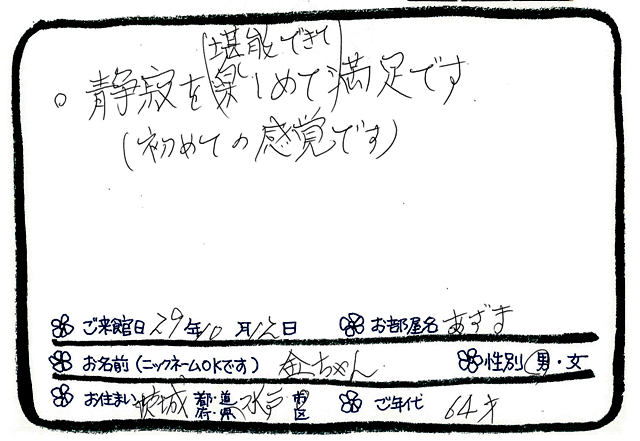 (堪能できて)
○ 静寂を(楽しめて)満足です
(初めての感覚です)
ご来館日 29年10月12日 お部屋名 あずま
お名前(ニックネームOKです) 金ちゃん 性別 男・女
お住まい 茨城 都・道・府・県 水戸 市・区 ご年代 64才